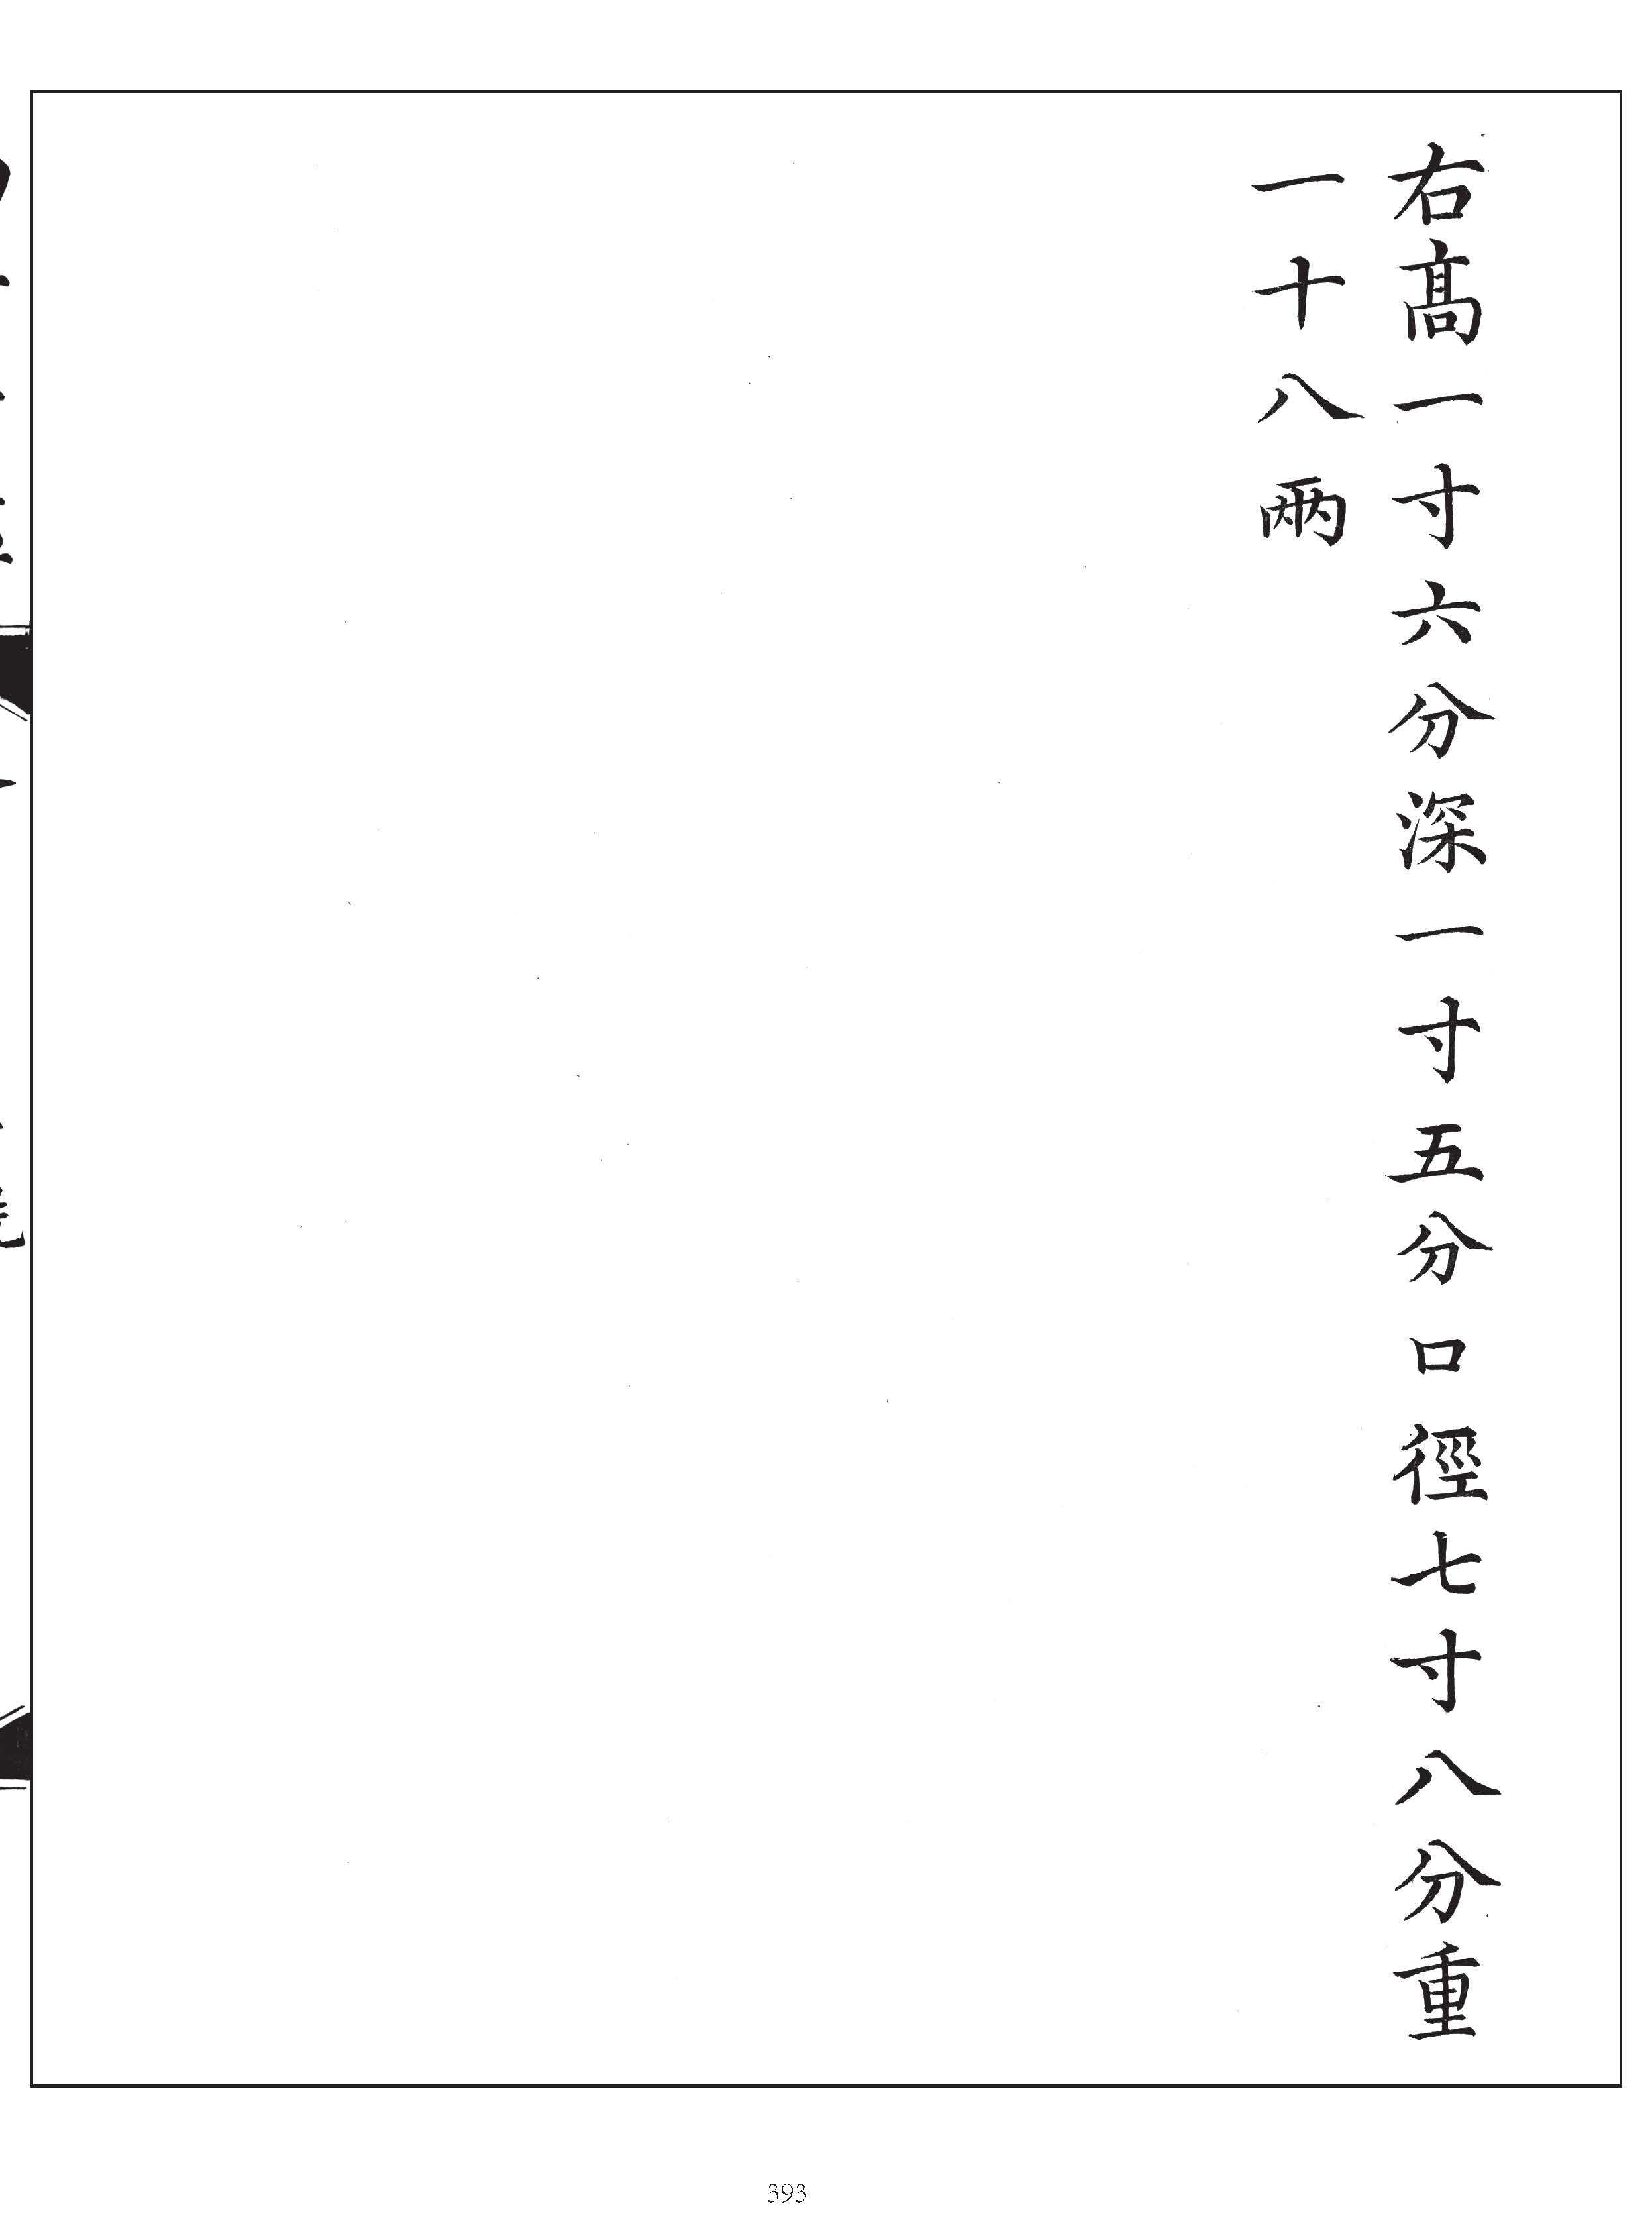 右髙一寸六分深一寸五分口徑七寸八分重
一十八兩
393